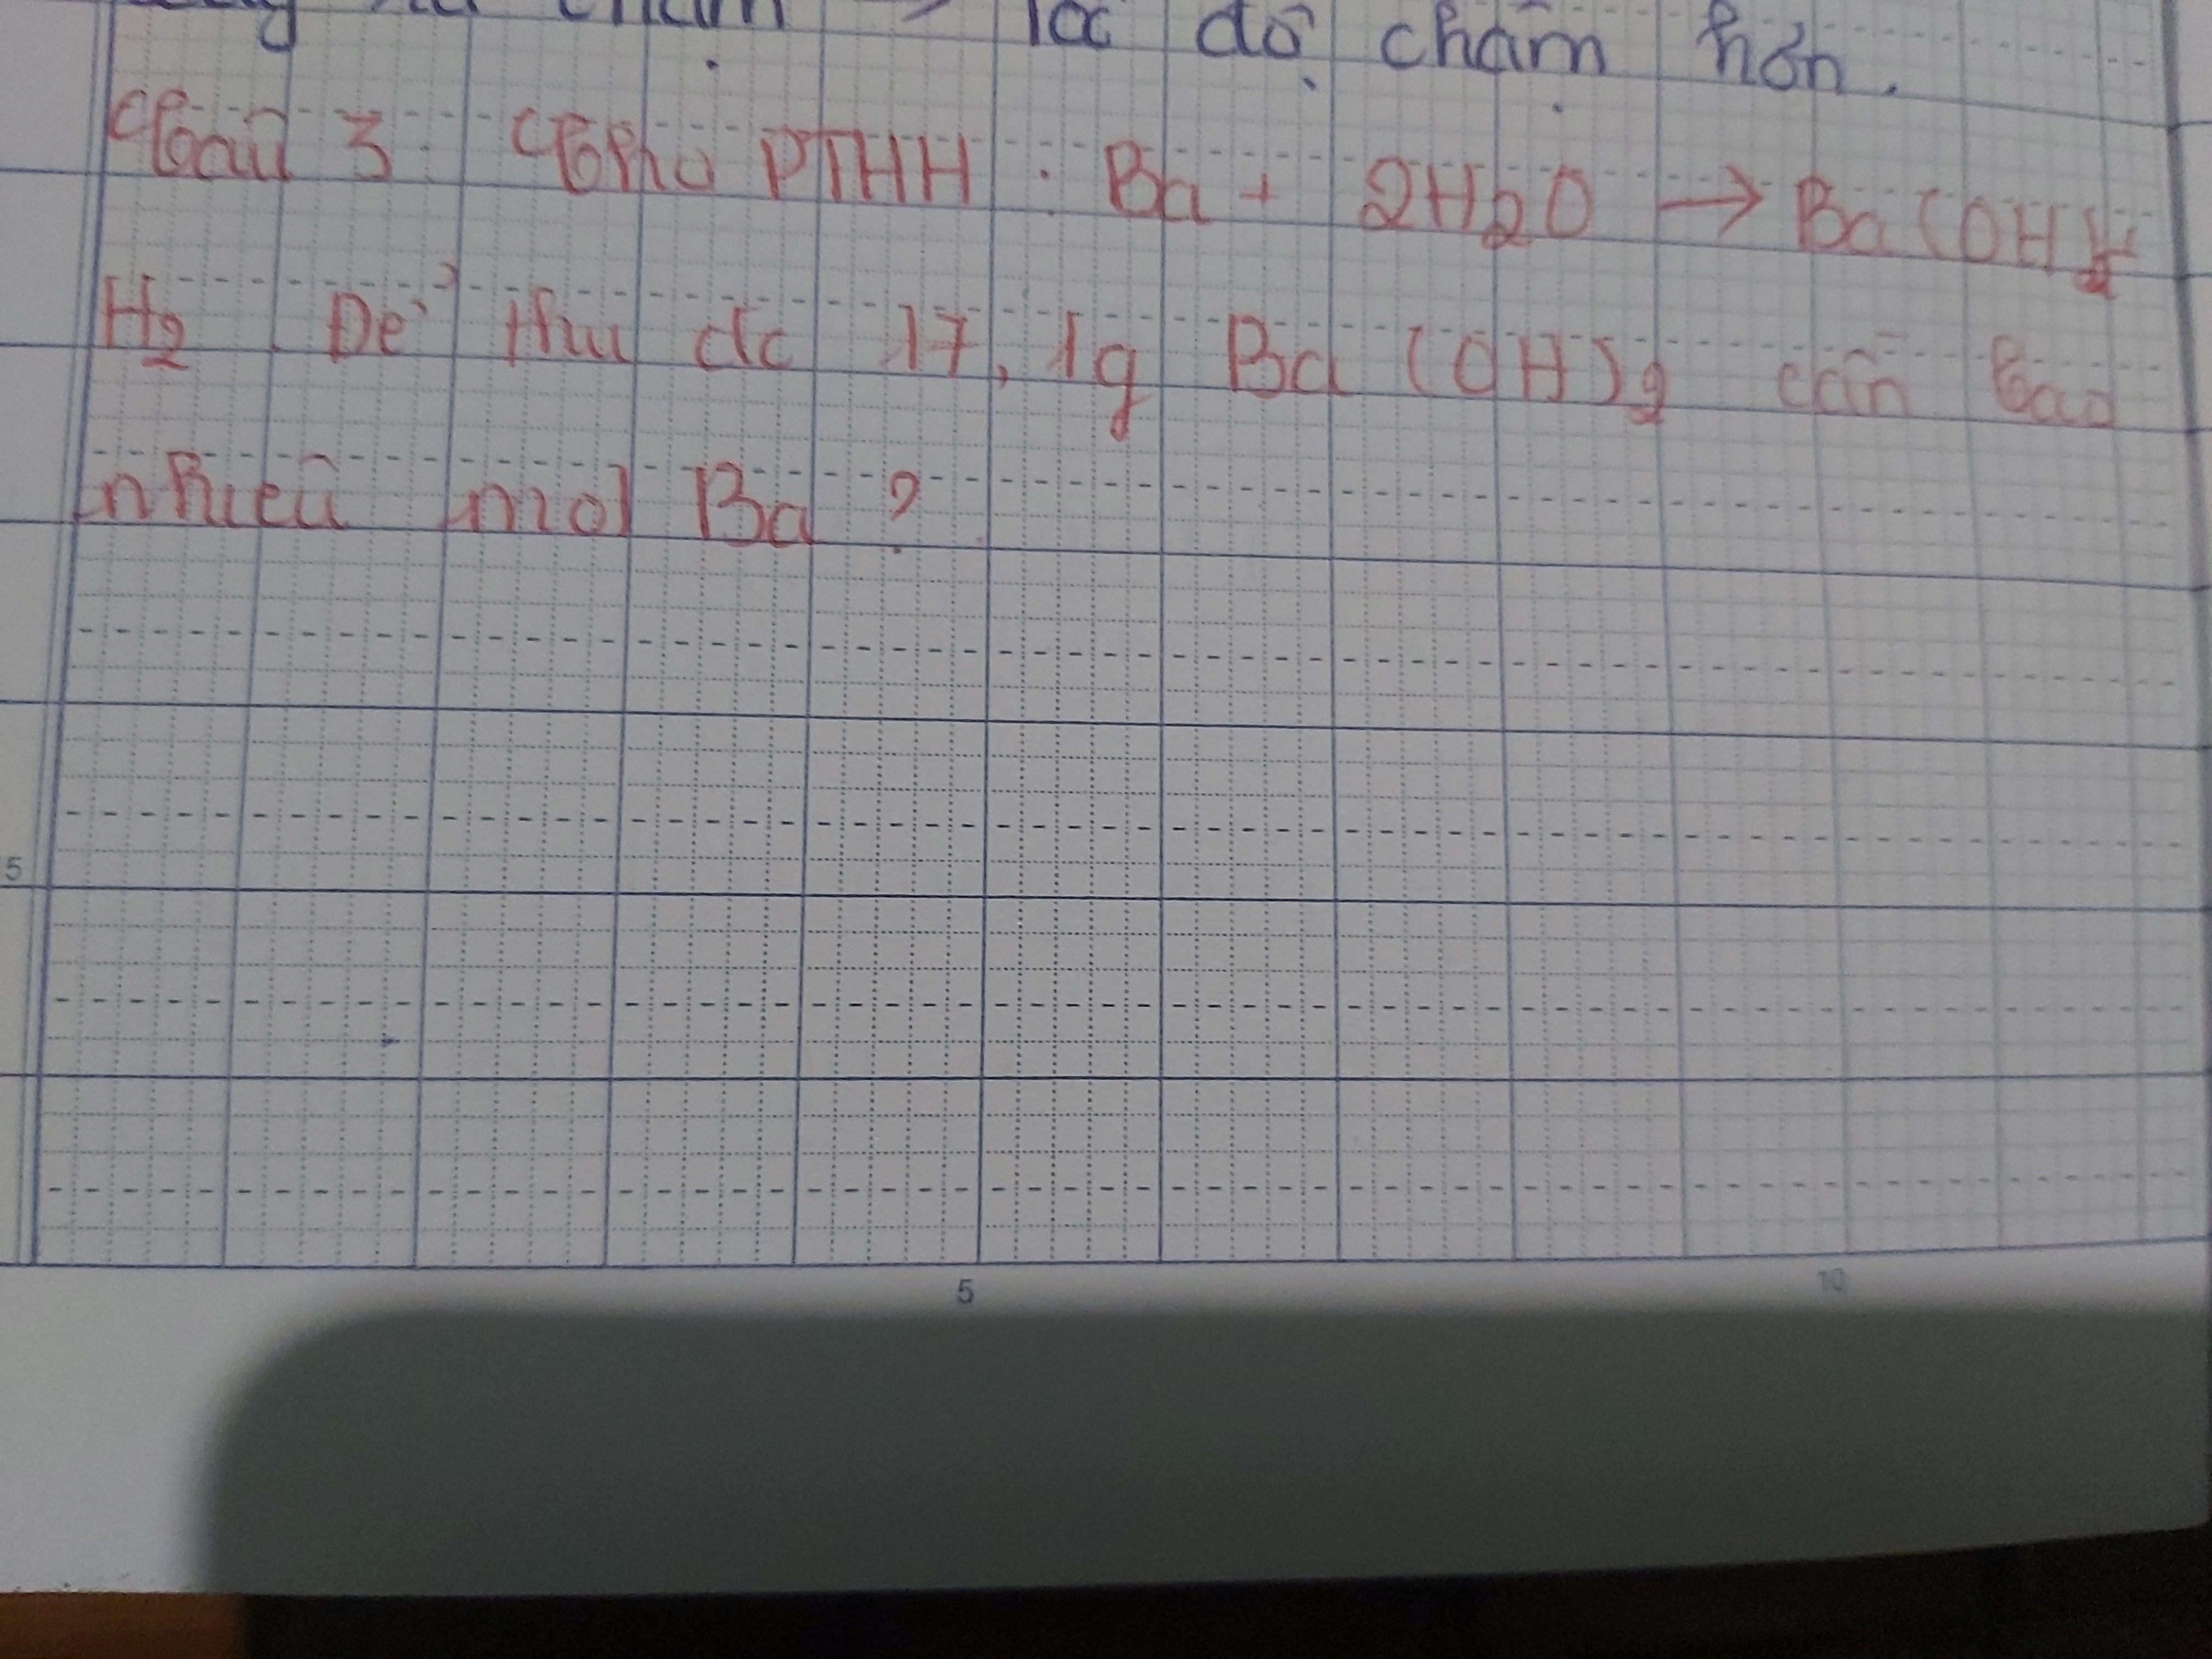 chậm → tốc độ chậm hơn.
Câu 3. Cho PTHH : Ba + 2H2O → Ba(OH)2 +
H2. Để thu đc 17,1g Ba(OH)2 cần bao
nhiêu mol Ba ?
5
5 10